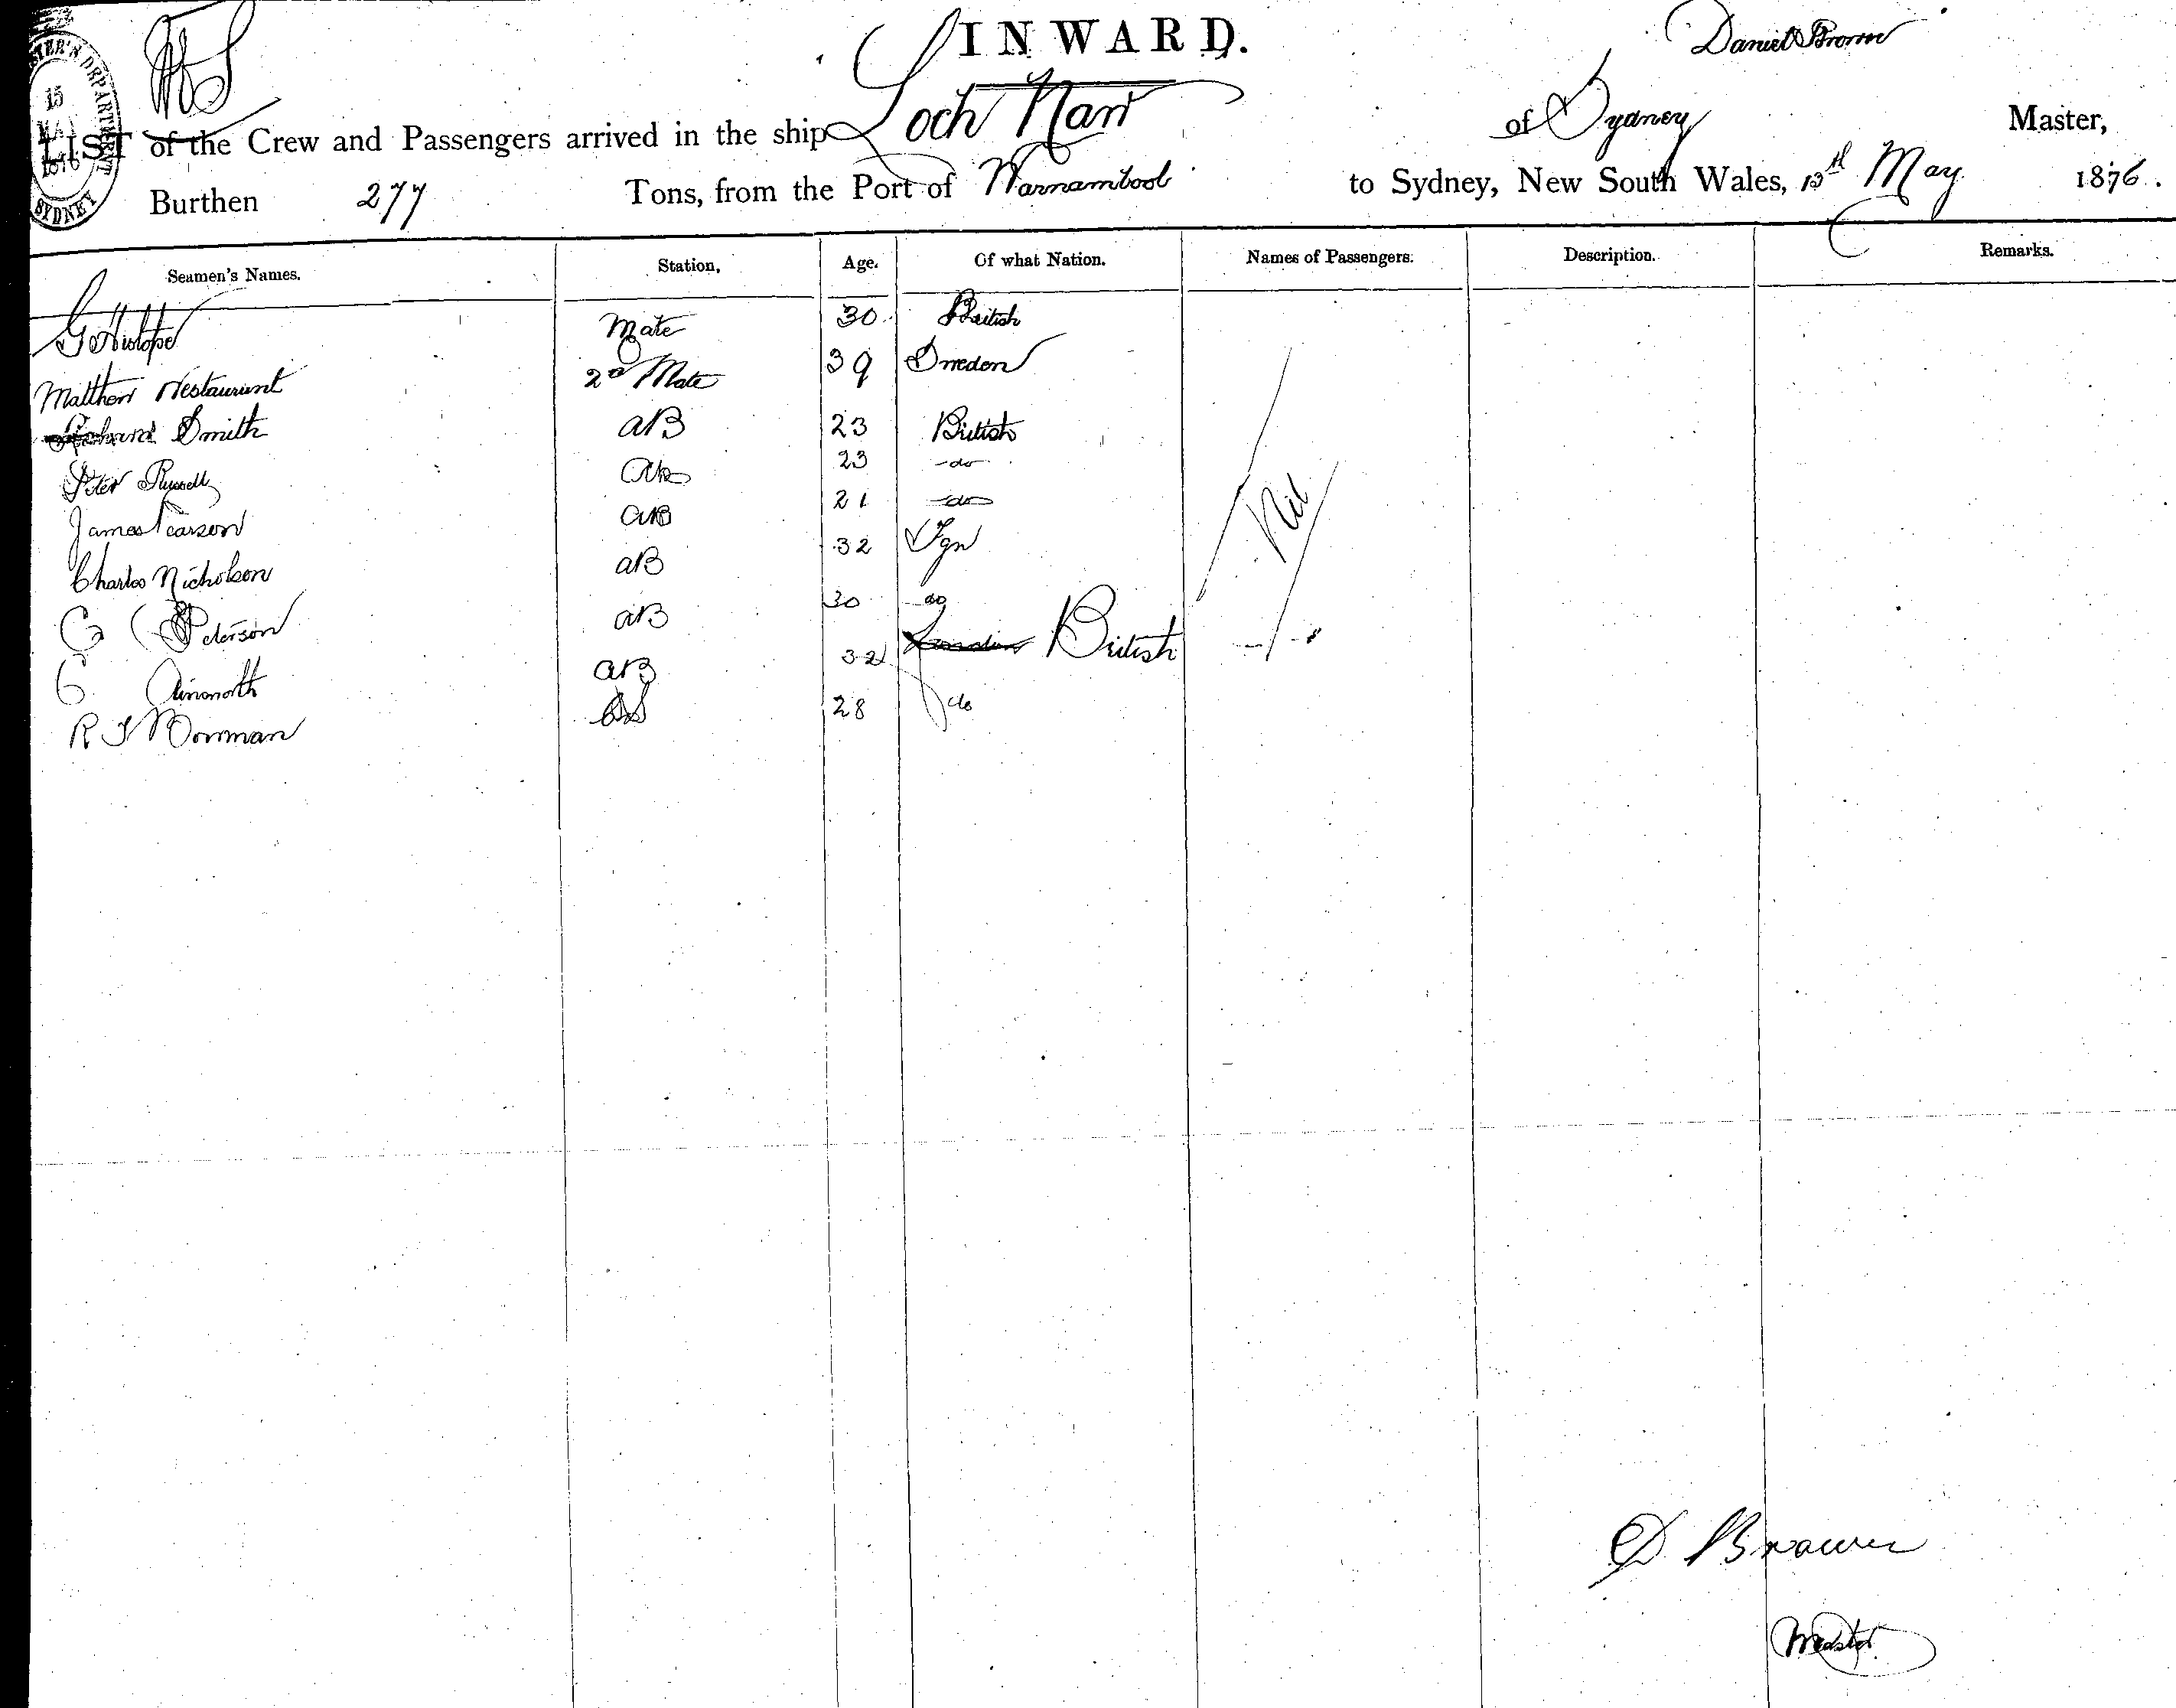 INWARD.
Daniel Brown
LIST of the Crew and Passengers arrived in the ship Loch Narr of Sydney Master,
Burthen 277 Tons, from the Port of Warnambool to Sydney, New South Wales, 13th May 1876.
Seamen's Names. Station, Age. Of what Nation. Names of Passengers. Description. Remarks.
Mate 30 British
Matthew 2d Mate 39 Sweden
Smith AB 23 British
Peter Russell AB 23 do
James Pearson AB 21 do Nil
Charles Nicholson AB 32 Fgn
C Peterson AB 30 do
G Ainsworth AB 32 British
R J Bowman 28 do
D Brown
Master
15 MAY 1876
SYDNEY